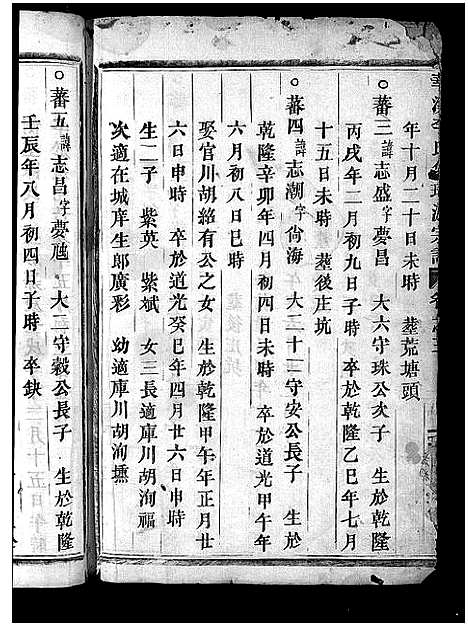 年十月二十日未時 塟荒塘頭
○蕃三諱志盛字夢昌 大六守珠公次子 生於乾隆
丙戌年二月初九日子時 卒於乾隆乙巳年七月
十五日未時 塟後庄坑
○蕃四諱志潮字尙海 大二十二守安公長子 生於
乾隆辛卯年四月初四日未時 卒於道光甲午年
六月初八日巳時
娶官川胡絡有公之女 生於乾隆甲午年正月廿
六日申時 卒於道光癸巳年四月廿六日申時
生二子 紫英 紫斌 女三長適庫川胡洵福
次適在城庠生郎廣彩 幼適庫川胡洵
○蕃五諱志昌字夢 大二守穀公長子 生於乾隆
壬辰年八月初四日子時 卒缺